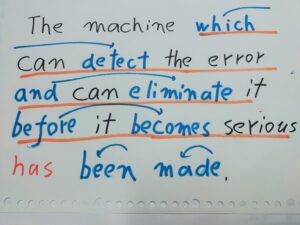 The machine which
can detect the error
and can eliminate it
before it becomes serious
has been made.